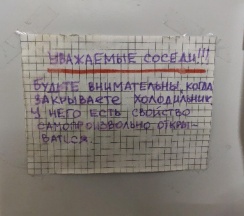 УВАЖАЕМЫЕ СОСЕДИ!!!
БУДЬТЕ ВНИМАТЕЛЬНЫ, КОГДА
ЗАКРЫВАЕТЕ ХОЛОДИЛЬНИК
У НЕГО ЕСТЬ СВОЙСТВО
САМОПРОИЗВОЛЬНО ОТКРЫ-
ВАТЬСЯ